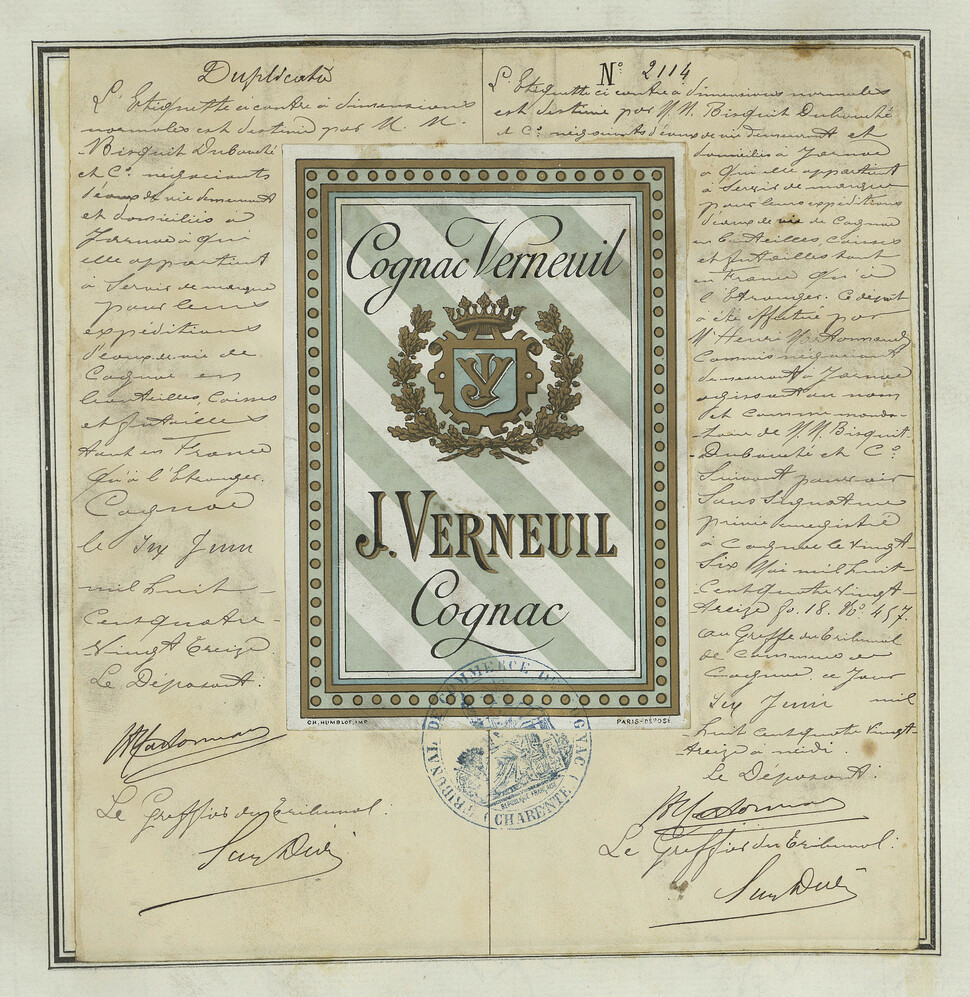 Duplicata
L'Etiquette ci contre à dimensions
normales est destinée par M. M.
Bisquit Dubouché
et Cie négociants
d'eaux de vie demeurant
et domiciliés à
Jarnac à qui
elle appartient
à servir de marque
pour leurs
expéditions
d'eaux de vie de
Cognac en
bouteilles, caisses
et futailles
tant en France
qu'à l'Etranger.
Cognac
le Six Juin
mil huit
cent quatre-
vingt treize
Le Déposant:
Le Greffier du Tribunal.
No 2114
L'Etiquette ci contre à dimensions normales
est destinée par M.M. Bisquit Dubouché
et Cie négociants d'eaux de vie demeurant et
domiciliés à Jarnac
à qui elle appartient
à servir de marque
pour leurs expéditions
d'eaux de vie de Cognac
en bouteilles, caisses
et futailles tant
en France qu'à
l'Etranger. Ce dépôt
a été effectué par
Mr Henri
Commis négociant
demeurant à Jarnac
agissant au nom
et comme manda-
taire de M.M. Bisquit
Dubouché et Cie
Suivant pouvoir
sans signature
privée enregistré
à Cognac le vingt-
six Mai mil huit
cent quatre vingt
treize fo. 18. No 457.
au Greffe du Tribunal
de Commerce de
Cognac, ce jour
Six Juin mil
huit cent quatre vingt-
treize à midi.
Le Déposant:
Le Greffier du Tribunal:
Cognac Verneuil
JV
J. VERNEUIL
Cognac
CH. HUMBLOT, IMP.
PARIS-DÉPOSÉ
TRIBUNAL DE COMMERCE DE COGNAC (CHARENTE)
RÉPUBLIQUE FRANÇAISE